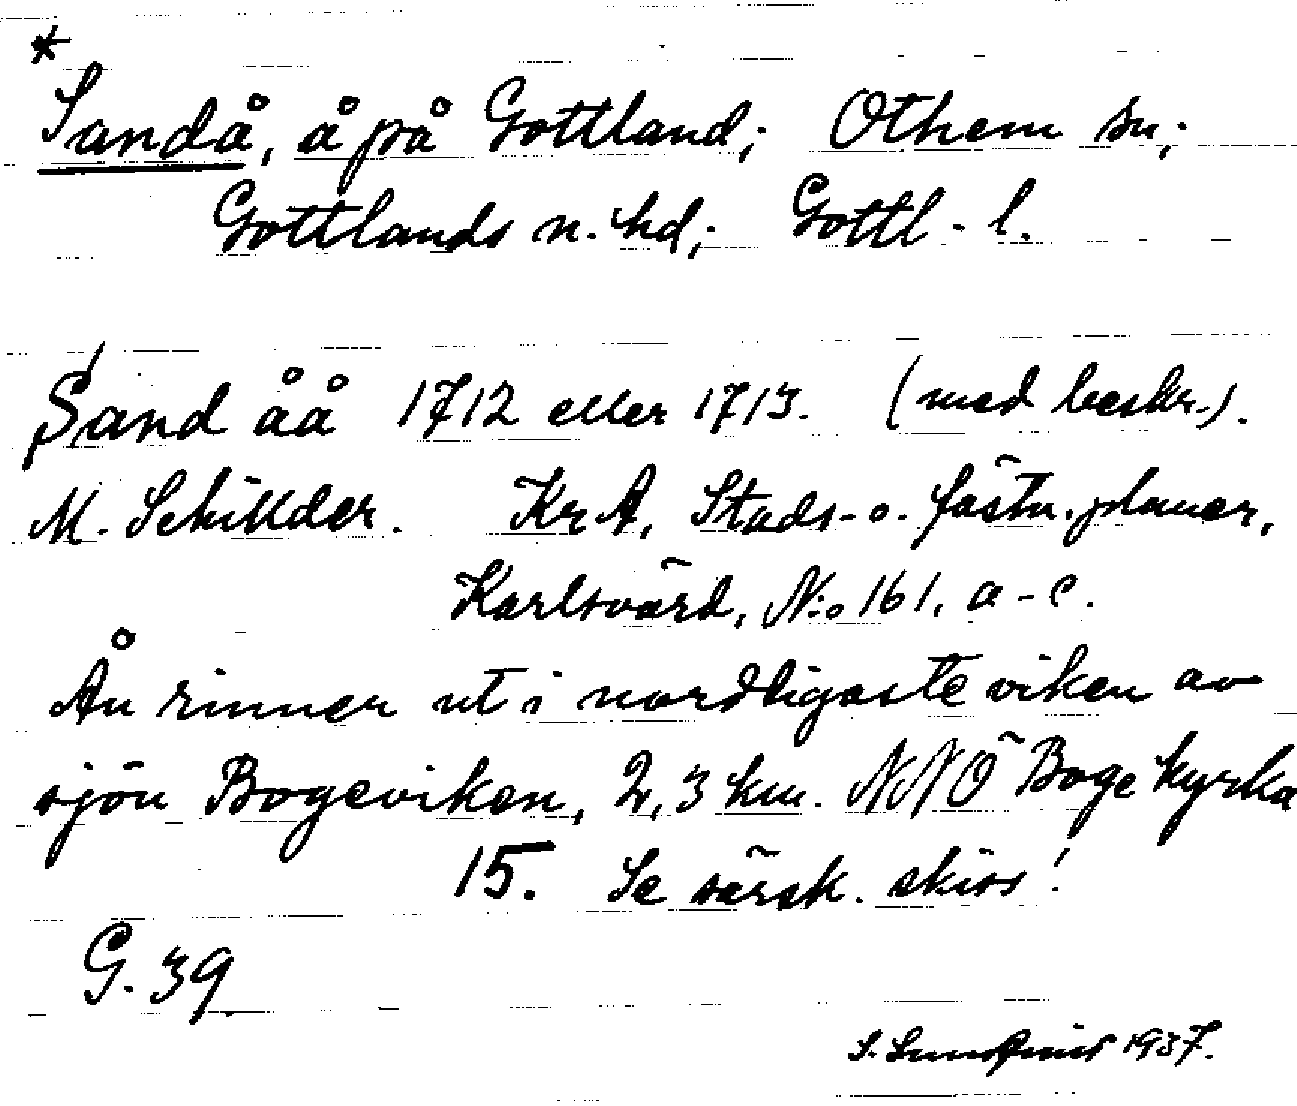 *
Sandå, å på Gottland; Othem sn;
Gottlands n. hd; Gottl. l.
Sand åå 1712 eller 1713. (med beskr.).
M. Schilder. Kr A, Stads- o. fästn. planer,
Karlsvärd, N:o 161, a-c.
Ån rinner ut i nordligaste viken av
sjön Bogeviken, 2,3 km. NNÖ Boge kyrka
15. Se särsk. skiss!
G. 39
S. Sundquist 1937.